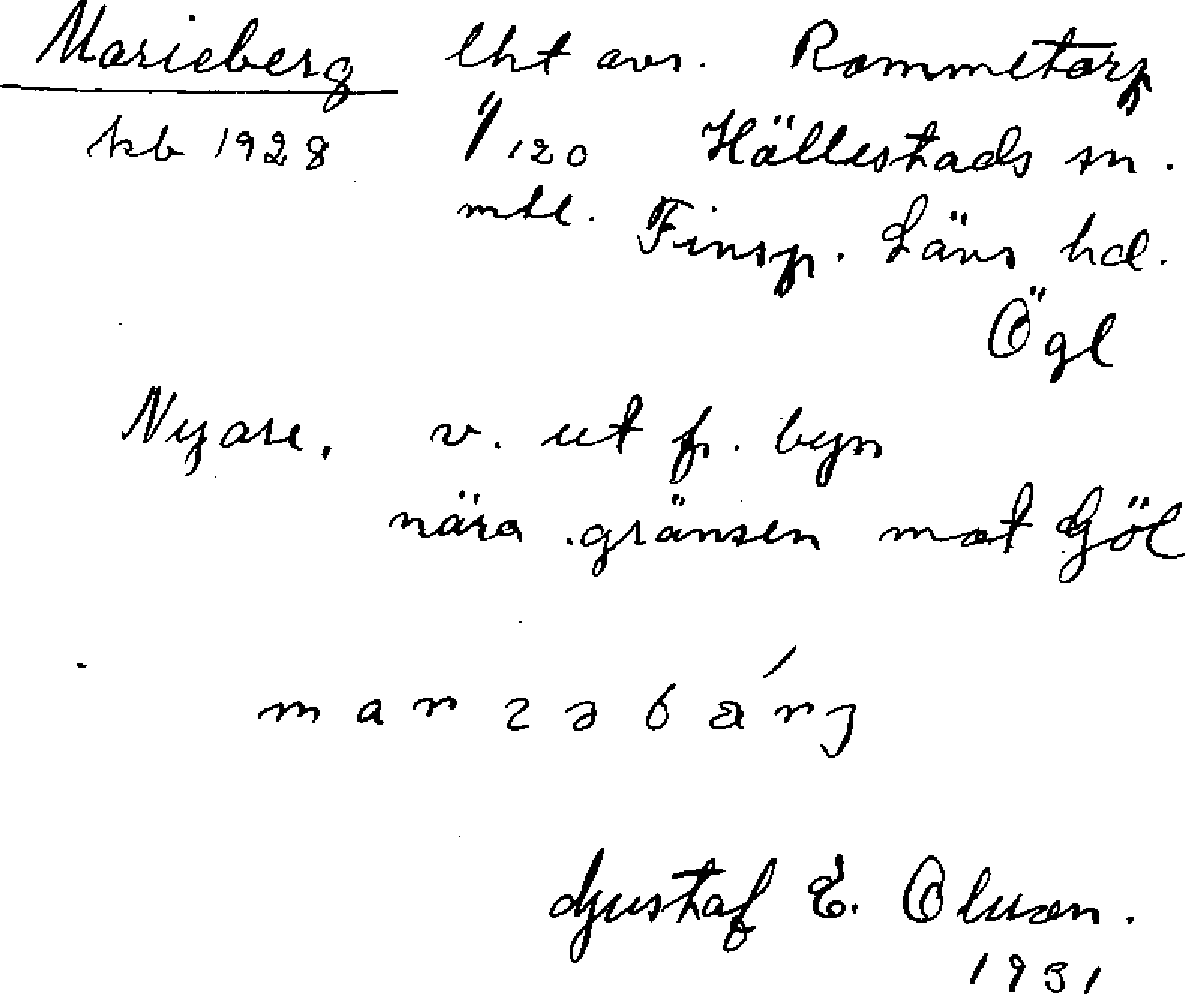 Marieberg lht avs. Rommetorp
kb 1928 1/120 Hällestads sn.
mtl. Finsp. Läns hd.
Ögl
Nyare, v. ut fr. byn
nära gränsen mot Göl
Gustaf E. Olsson.
1931